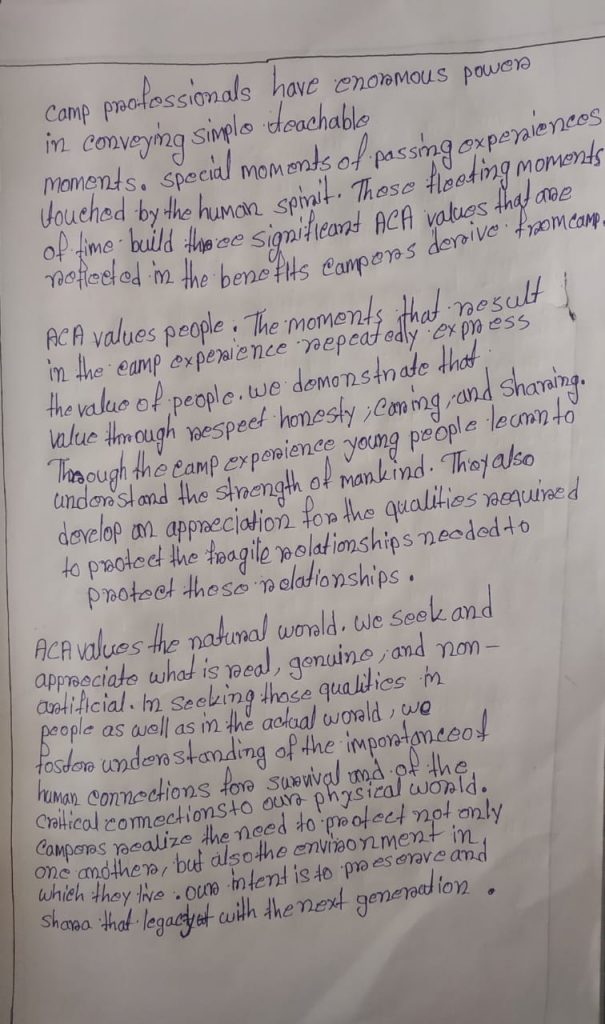 Camp professionals have enormous power
in conveying simple teachable
moments. special moments of passing experiences
touched by the human spirit. These fleeting moments
of time build three significant ACA values that are
reflected in the benefits campers derive from camp.
ACA values people. The moments that result
in the camp experience repeatedly express
the value of people. we demonstrate that
value through respect honesty, caring, and sharing.
Through the camp experience young people learn to
understand the strength of mankind. They also
develop an appreciation for the qualities required
to protect the fragile relationships needed to
protect these relationships.
ACA values the natural world. we seek and
appreciate what is real, genuine, and non-
artificial. In seeking those qualities in
people as well as in the actual world, we
foster understanding of the importance of
human connections for survival and of the
critical connections to our physical world.
Campers realize the need to protect not only
one another, but also the environment in
which they live. our intent is to preserve and
share that legacy with the next generation.